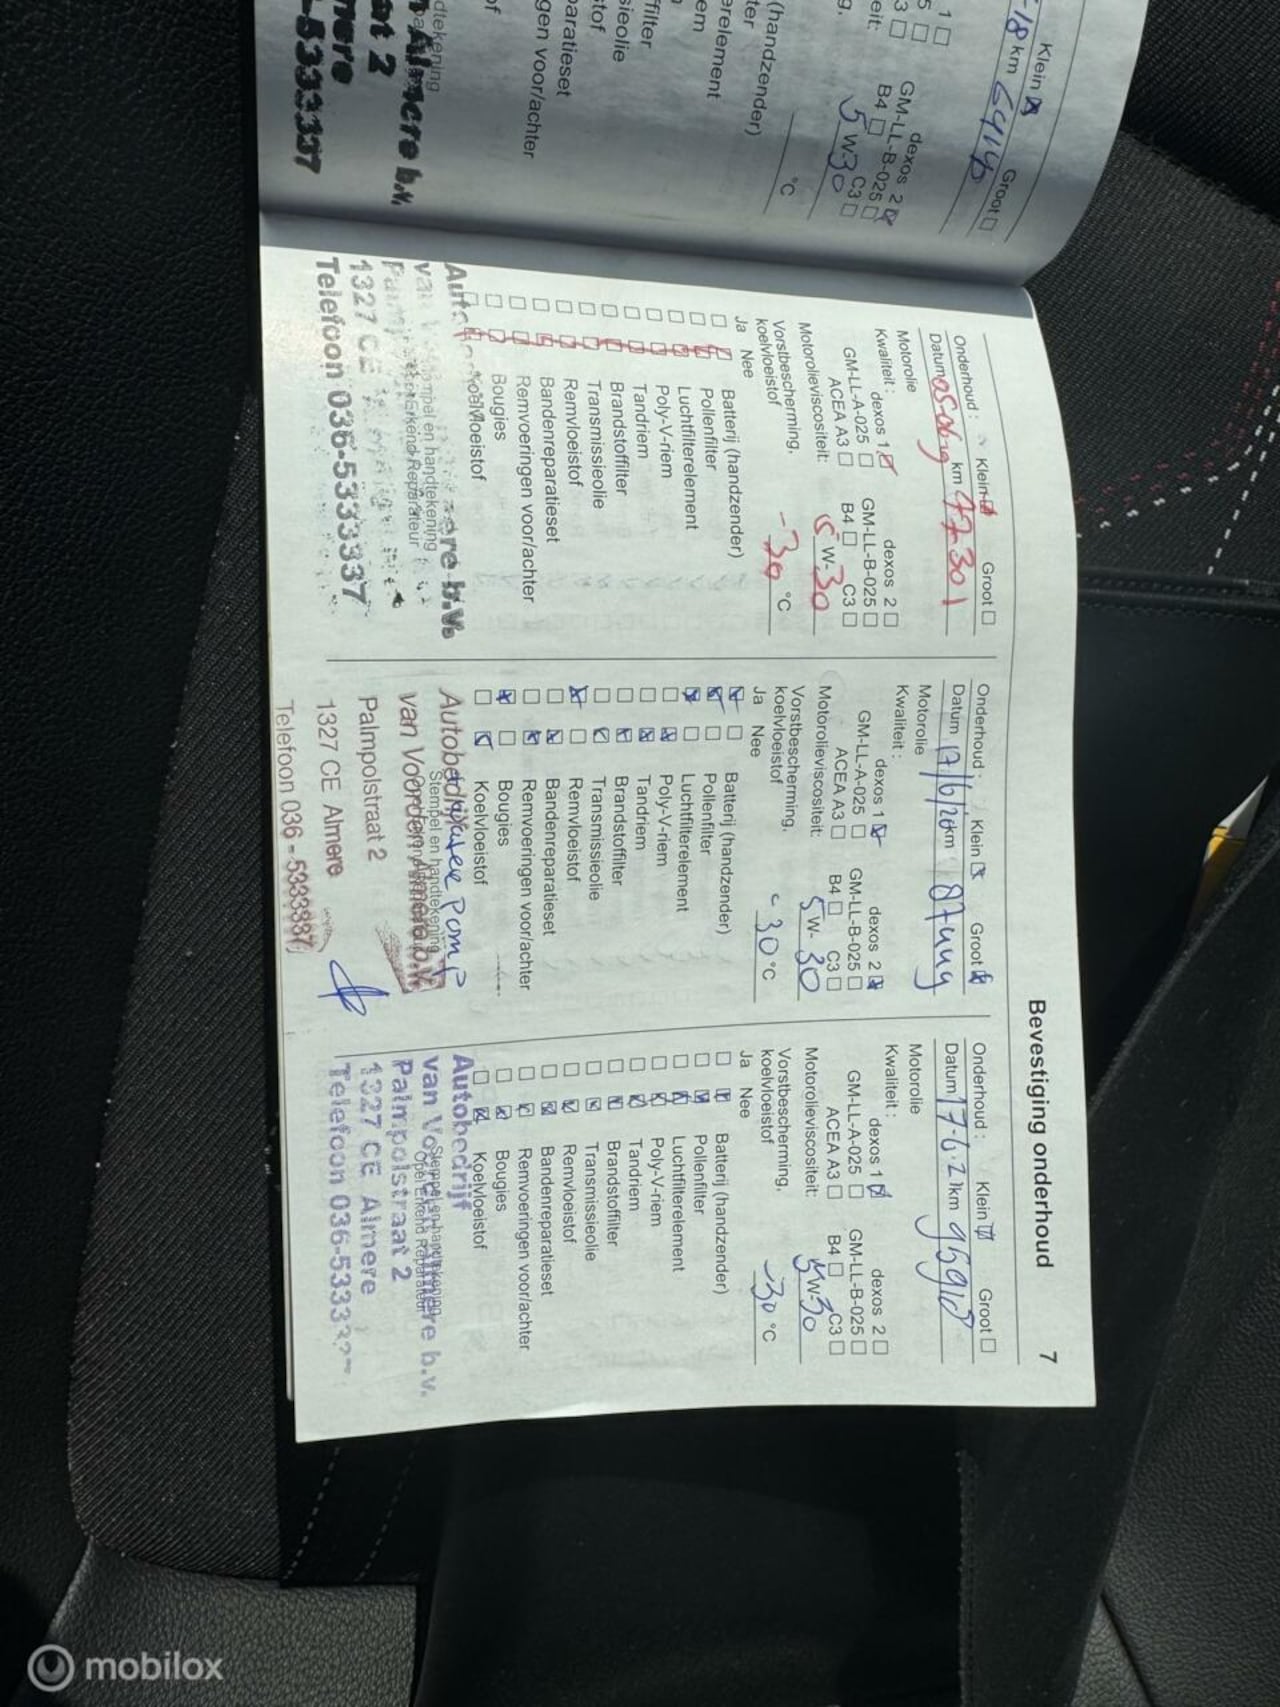 Klein Groot
-18 km 6416
1
dexos 2
5
GM-LL-B-025
3
B4 C3
eit:
5 W30
g.
°C
(handzender)
ter
erelement
em
filter
sieolie
stof
paratieset
gen voor/achter
of
dtekening
Almere b.v.
at 2
mere
-5333337
Bevestiging onderhoud 7
Onderhoud : Klein Groot
Datum 05-06-19 km 77301
Motorolie
Kwaliteit : dexos 1 dexos 2
GM-LL-A-025 GM-LL-B-025
ACEA A3 B4 C3
Motorolieviscositeit: 5 W- 30
Vorstbescherming,
koelvloeistof -30 °C
Ja Nee
Batterij (handzender)
Pollenfilter
Luchtfilterelement
Poly-V-riem
Tandriem
Brandstoffilter
Transmissieolie
Remvloeistof
Bandenreparatieset
Remvoeringen voor/achter
Bougies
Koelvloeistof
Stempel en handtekening
Opel Erkend Reparateur
1327 CE
Telefoon 036-5333337
Onderhoud : Klein Groot
Datum 17/6/20 km 87449
Motorolie
Kwaliteit : dexos 1 dexos 2
GM-LL-A-025 GM-LL-B-025
ACEA A3 B4 C3
Motorolieviscositeit: 5 W- 30
Vorstbescherming,
koelvloeistof -30 °C
Ja Nee
Batterij (handzender)
Pollenfilter
Luchtfilterelement
Poly-V-riem
Tandriem
Brandstoffilter
Transmissieolie
Remvloeistof
Bandenreparatieset
Remvoeringen voor/achter
Bougies
Koelvloeistof
water pomp
Stempel en handtekening
Autobedrijf
van Voorden Almere b.v.
Palmpolstraat 2
1327 CE Almere
Telefoon 036 - 5333337
Onderhoud : Klein Groot
Datum 17-6-21 km 95918
Motorolie
Kwaliteit : dexos 1 dexos 2
GM-LL-A-025 GM-LL-B-025
ACEA A3 B4 C3
Motorolieviscositeit: 5W-30
Vorstbescherming,
koelvloeistof -30 °C
Ja Nee
Batterij (handzender)
Pollenfilter
Luchtfilterelement
Poly-V-riem
Tandriem
Brandstoffilter
Transmissieolie
Remvloeistof
Bandenreparatieset
Remvoeringen voor/achter
Bougies
Koelvloeistof
Stempel en handtekening
Opel Erkend Reparateur
Autobedrijf
van Voorden Almere b.v.
Palmpolstraat 2
1327 CE Almere
Telefoon 036-5333337
mobilox